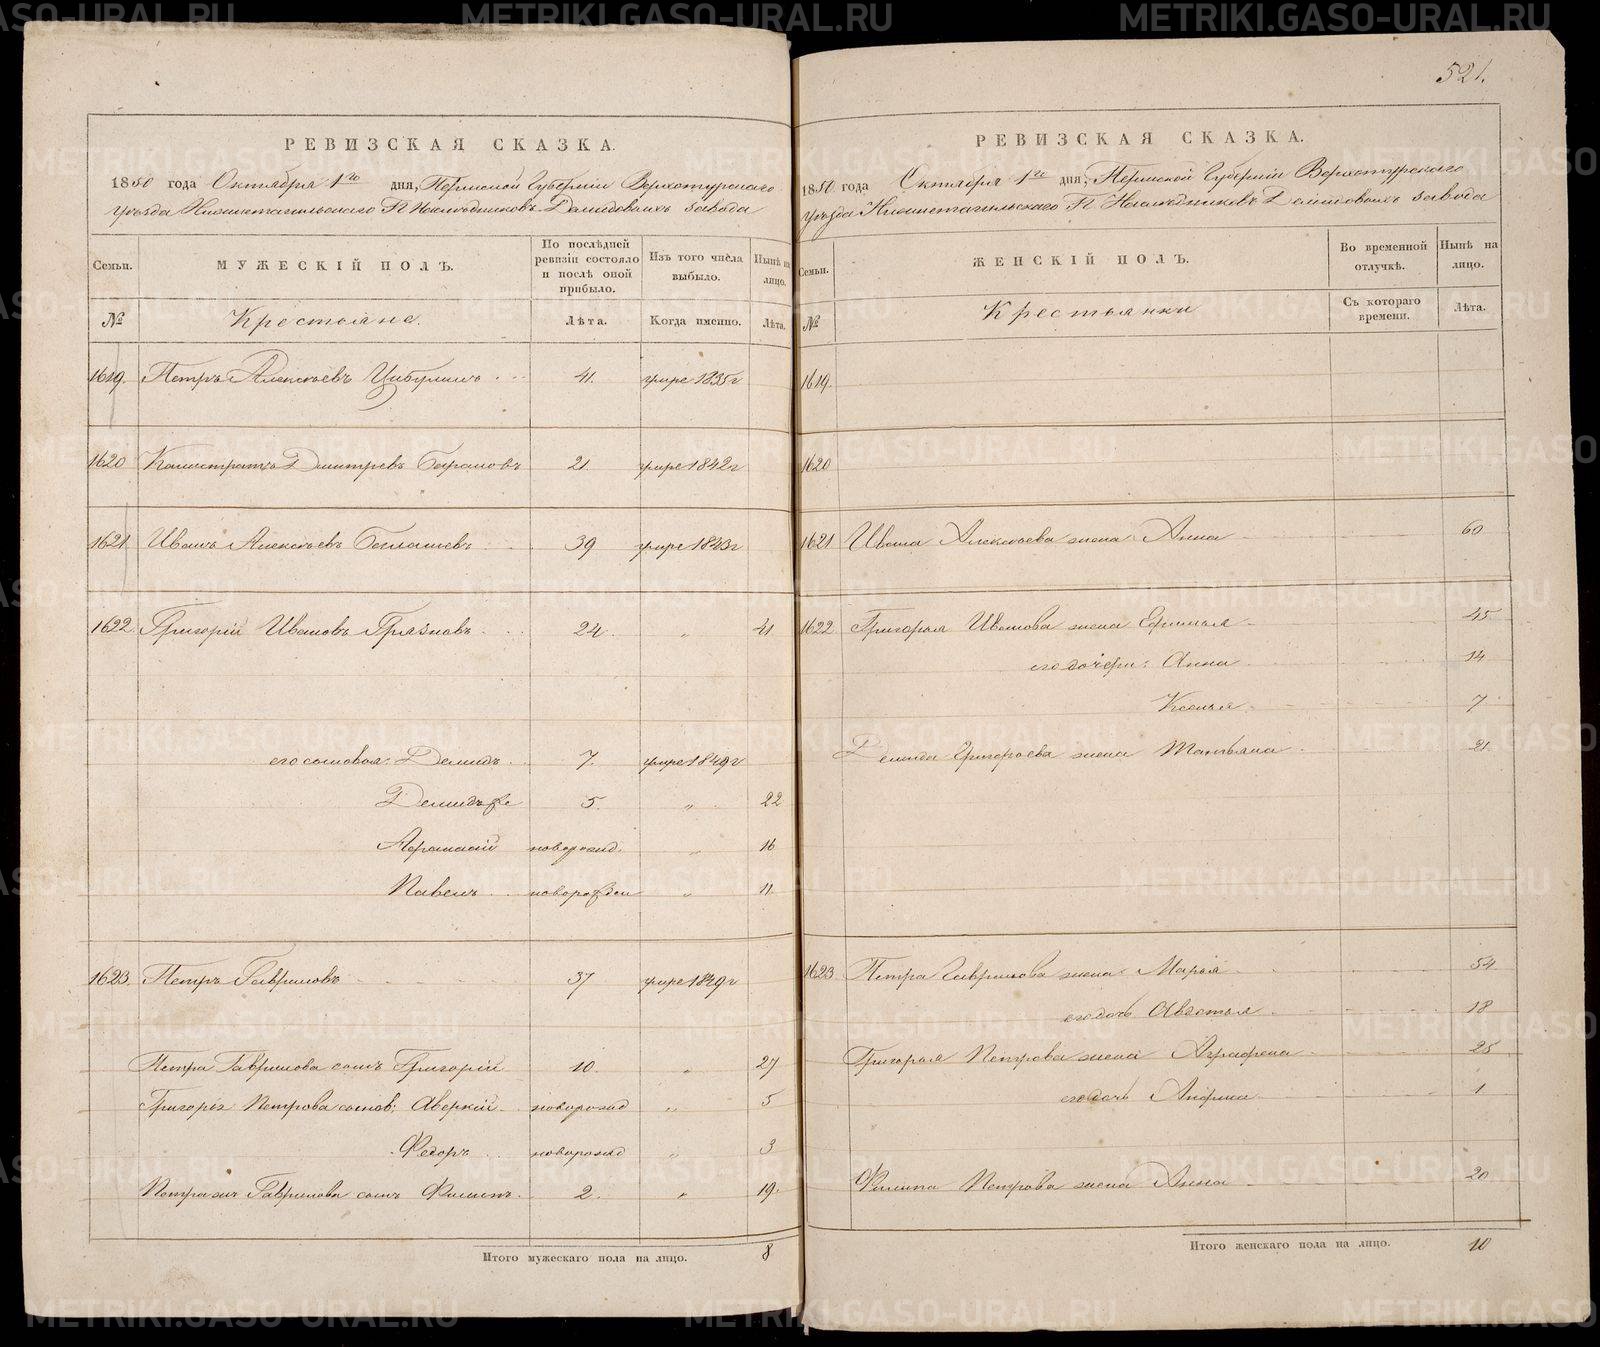 РЕВИЗСКАЯ СКАЗКА.
1850 года Октября 1го дня, Пермской Губернiи Верхотурскаго
уѣзда Нижнетагильскаго Г. Наслѣдниковъ Демидовыхъ завода
Семьи.
МУЖЕСКIЙ ПОЛЪ.
По послѣдней ревизiи состояло и послѣ оной прибыло.
Изъ того числа выбыло.
Нынѣ на лицо.
№
Крестьяне.
Лѣта.
Когда именно.
Лѣта.
1619. Петръ Алексѣевъ Цибулинъ 41. умре 1835 г
1620 Калистратъ Дмитрiевъ Барановъ 21. умре 1842 г
1621. Иванъ Алексѣевъ 39 умре 1843 г
1622. Григорiй Ивановъ Грязновъ 24. „ 41
его сыновья: Демидъ 7. умре 1849 г
Демидъ же 5. „ 22
Афанасiй новорожд. „ 16
Павелъ новорожден „ 11.
1623. Петръ Гавриловъ 37 умре 1849 г
Петра Гаврилова сынъ Григорiй 10. „ 27
Григорья Петрова сынов: Аверкiй новорожд „ 5
Федоръ новорожд „ 3
Петра же Гаврилова сынъ Филипъ 2. „ 19.
Итого мужескаго пола на лицо. 8
521.
РЕВИЗСКАЯ СКАЗКА.
1850 года Октября 1го дня, Пермской Губернiи Верхотурскаго
уѣзда Нижнетагильскаго Г. Наслѣдниковъ Демидовыхъ завода
Семьи.
ЖЕНСКIЙ ПОЛЪ.
Во временной отлучкѣ.
Нынѣ на лицо.
№
Крестьянки
Съ котораго времени.
Лѣта.
1619.
1620
1621 Ивана Алексѣева жена Анна 60
1622 Григорья Иванова жена Ефимья 45
его дочери: Анна 14
Ксенья 7
Демида Григорьева жена Татьяна 21.
1623 Петра Гаврилова жена Марья 54
его дочь Авдотья 18
Григорья Петрова жена Аграфена 25
его дочь Анфиса 1
Филипа Петрова жена Анна 20
Итого женскаго пола на лицо. 10
METRIKI.GASO-URAL.RU